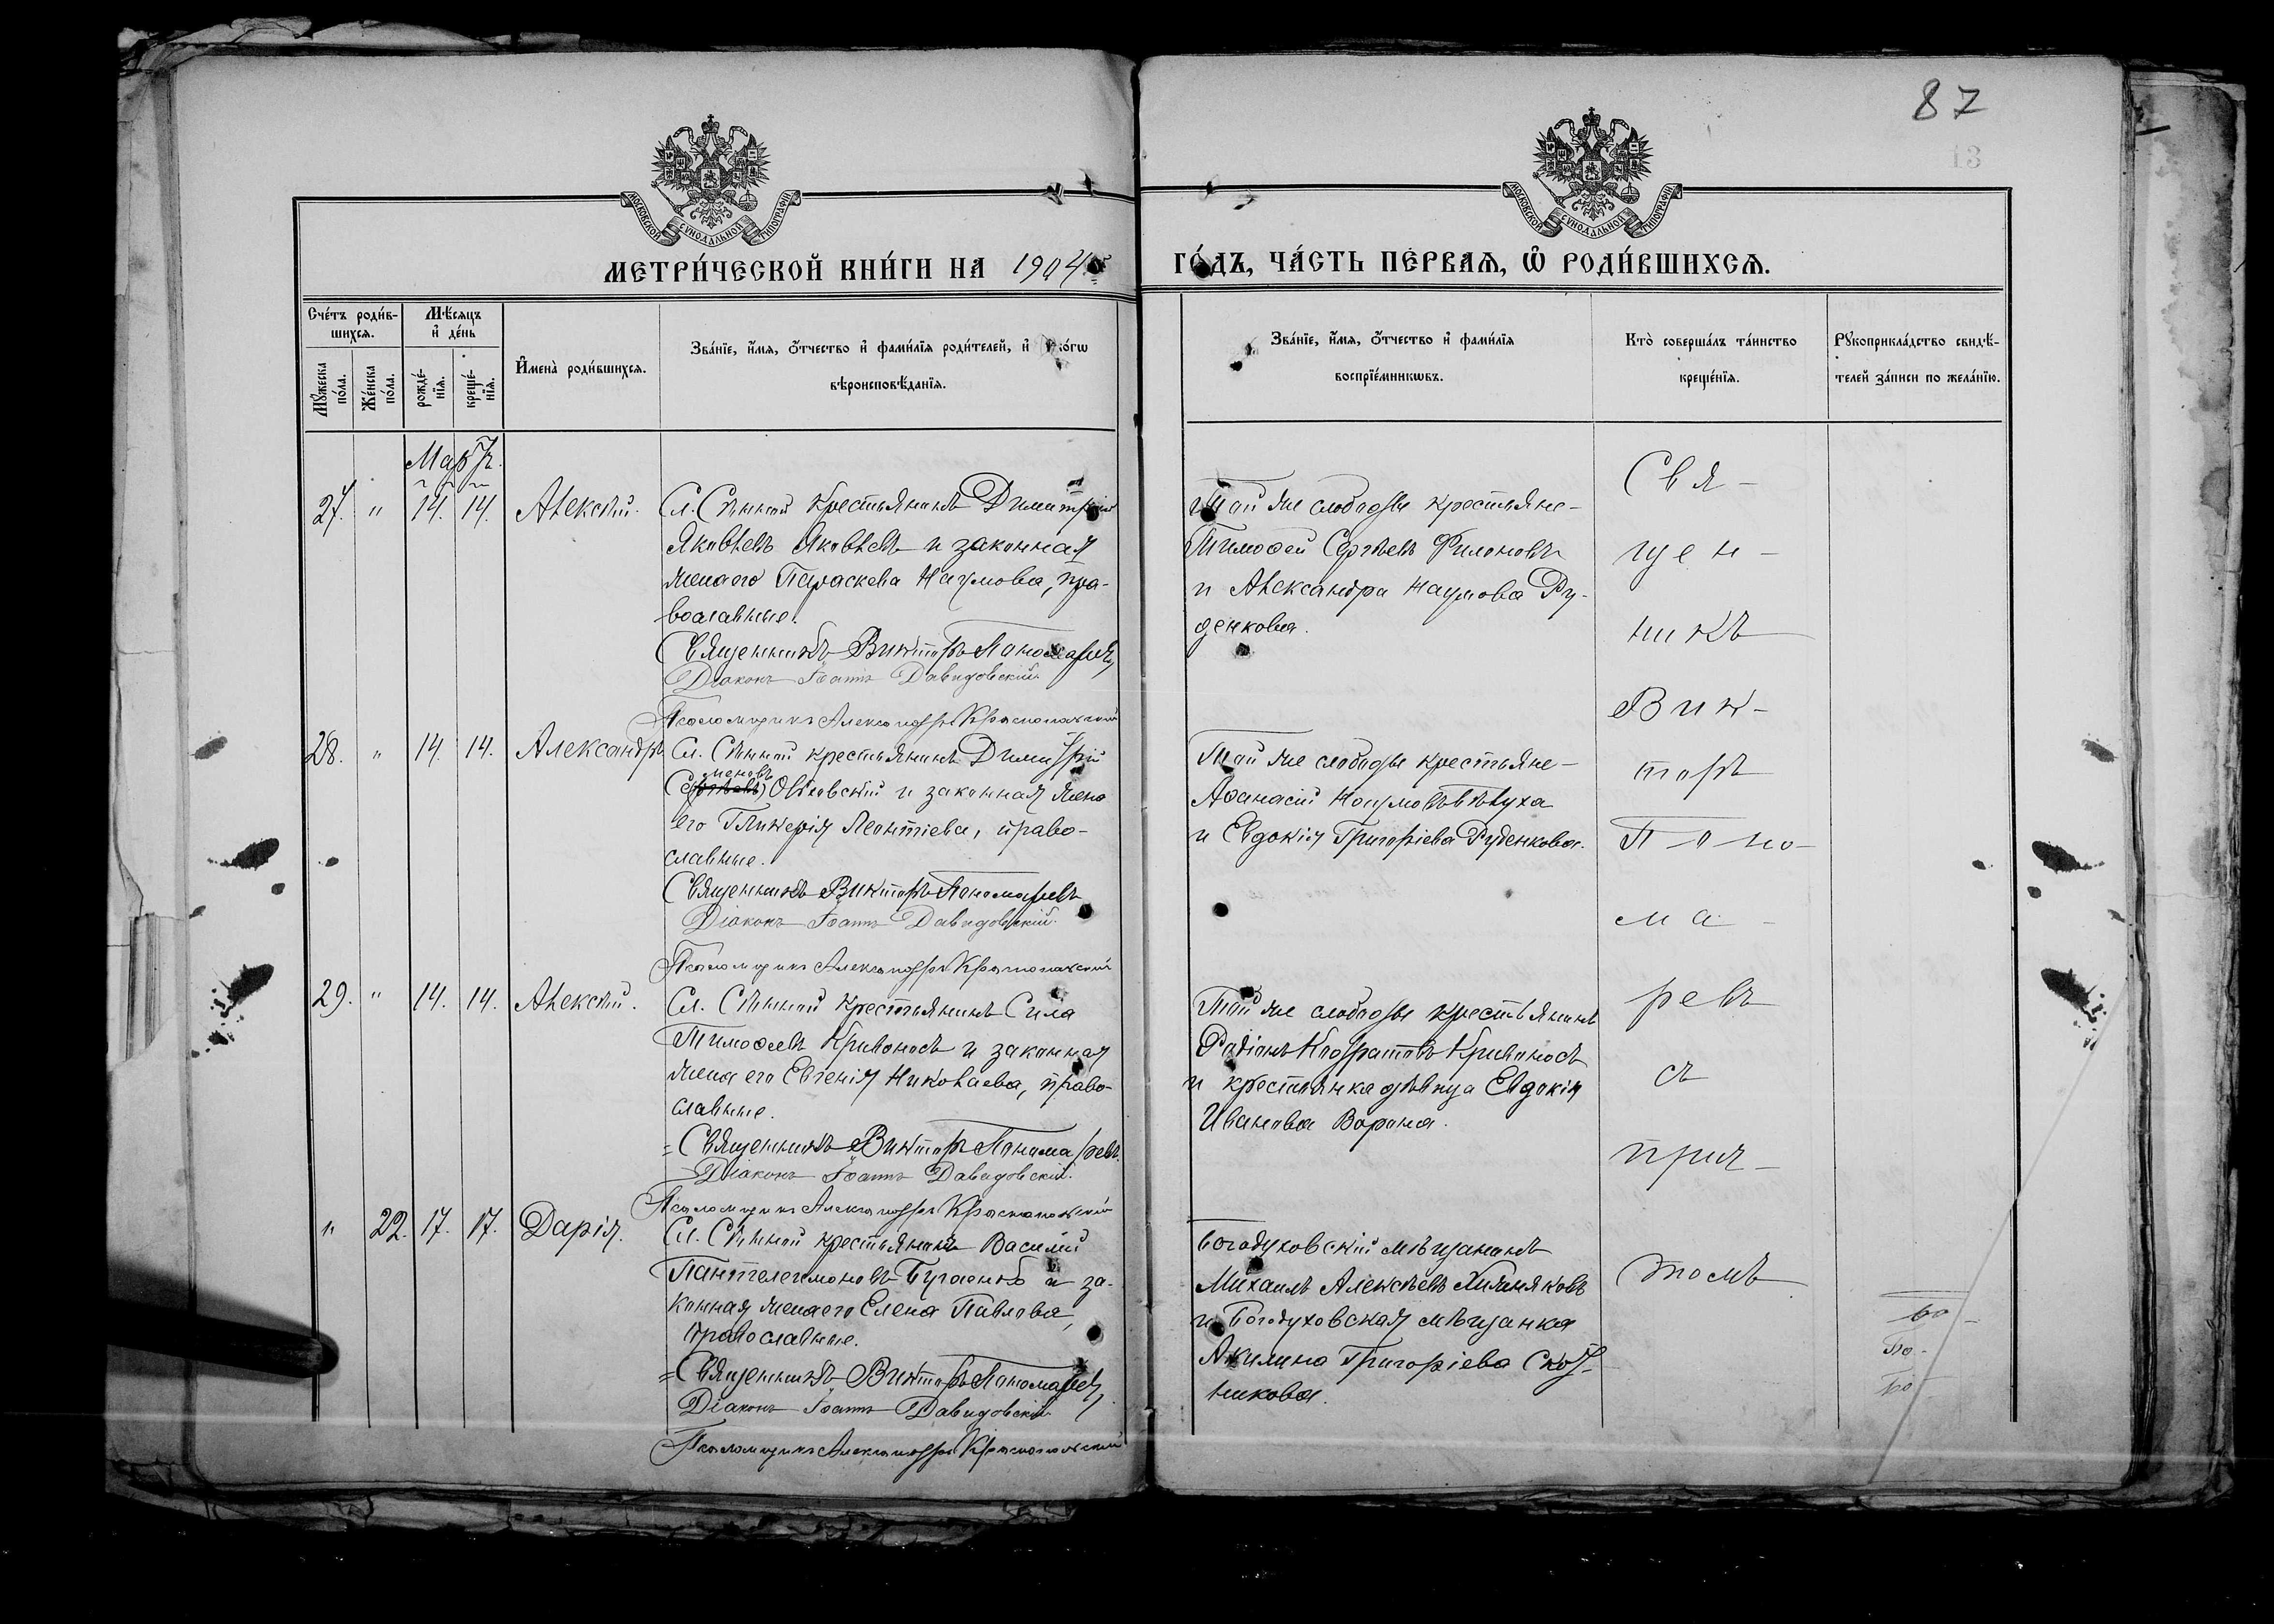 87
13
МОСКОВСКОЙ СУНОДАЛЬНОЙ ТИПОГРАФІИ
МОСКОВСКОЙ СУНОДАЛЬНОЙ ТИПОГРАФІИ
МЕТРИ́ЧЕСКОЙ КНИ́ГИ НА 1904
ГО́ДЪ, ЧА́СТЬ ПЕ́РВАЯ, Ѽ РОДИ́ВШИХСЯ.
Сче́тъ роди́в-
шихся.
Мѣ́сяцъ
и де́нь
Мꙋ́жеска по́ла.
Же́нска по́ла.
рожде́-
нїѧ.
креще́-
нїѧ.
И҆мена̀ роди́вшихся.
Зва́нїе, и҆́мя, ѻ҆́тчество и҆ фами́лїя роди́телей, и҆ ко́гѡ
вѣроисповѣ́данїя.
Зва́нїе, и҆́мя, ѻ҆́тчество и҆ фами́лїя
воспрїе́мникѡвъ.
Кто̀ соверша́лъ та́инство
креще́нїя.
Рꙋкоприкла́дство свидѣ́-
телей за́писи по жела́нїю.
Мартъ.
27. " 14. 14. Алексѣй.
Сл. Сѣнной крестьянинъ Димитрій
Яковлевъ Яковлевъ и законная
жена его Параскева Наумова, пра-
вославные.
Священникъ Викторъ Пономаревъ
Діаконъ Іоаннъ Давидовскій
Псаломщикъ Александръ Краснопольскій
Той же слободы крестьяне
Тимофей Сергѣевъ Филоновъ
и Александра Наумова Ру-
денкова.
28. " 14. 14. Александръ
Сл. Сѣнной крестьянинъ Димитрій
меновъ
и законная жена
его Гликерія Леонтіева, право-
славные.
Священникъ Викторъ Пономаревъ
Діаконъ Іоаннъ Давидовскій.
Псаломщикъ Александръ Краснопольскій
Той же слободы крестьяне
Афанасій Наумовъ
и Евдокія Григоріева Руденкова.
29. " 14. 14. Алексѣй.
Сл. Сѣнной крестьянинъ Сила
Тимофеевъ Кривоносъ и законная
жена его Евгенія Николаева, право-
славные.
Священникъ Викторъ Пономаревъ.
Діаконъ Іоаннъ Давидовскій.
Псаломщикъ Александръ Краснопольскій
Той же слободы крестьянинъ
Родіонъ Кривоносъ
и крестьянка дѣвица Евдокія
Иванова Ворона.
" 22. 17. 17. Дарія.
Сл. Сѣнной крестьянинъ Василій
Пантелеимоновъ Бугаенко и за-
конная жена его Елена Павлова,
православные.
Священникъ Викторъ Пономаревъ,
Діаконъ Іоаннъ Давидовскій
Псаломщикъ Александръ Краснопольскій
Богодуховскій мѣщанинъ
Михаилъ Алексѣевъ
и Богодуховская мѣщанка
Акилина Григоріева Скот-
никова.
Свя-
щен-
никъ
Вик-
торъ
Поно-
ма-
ревъ
съ
прич-
томъ